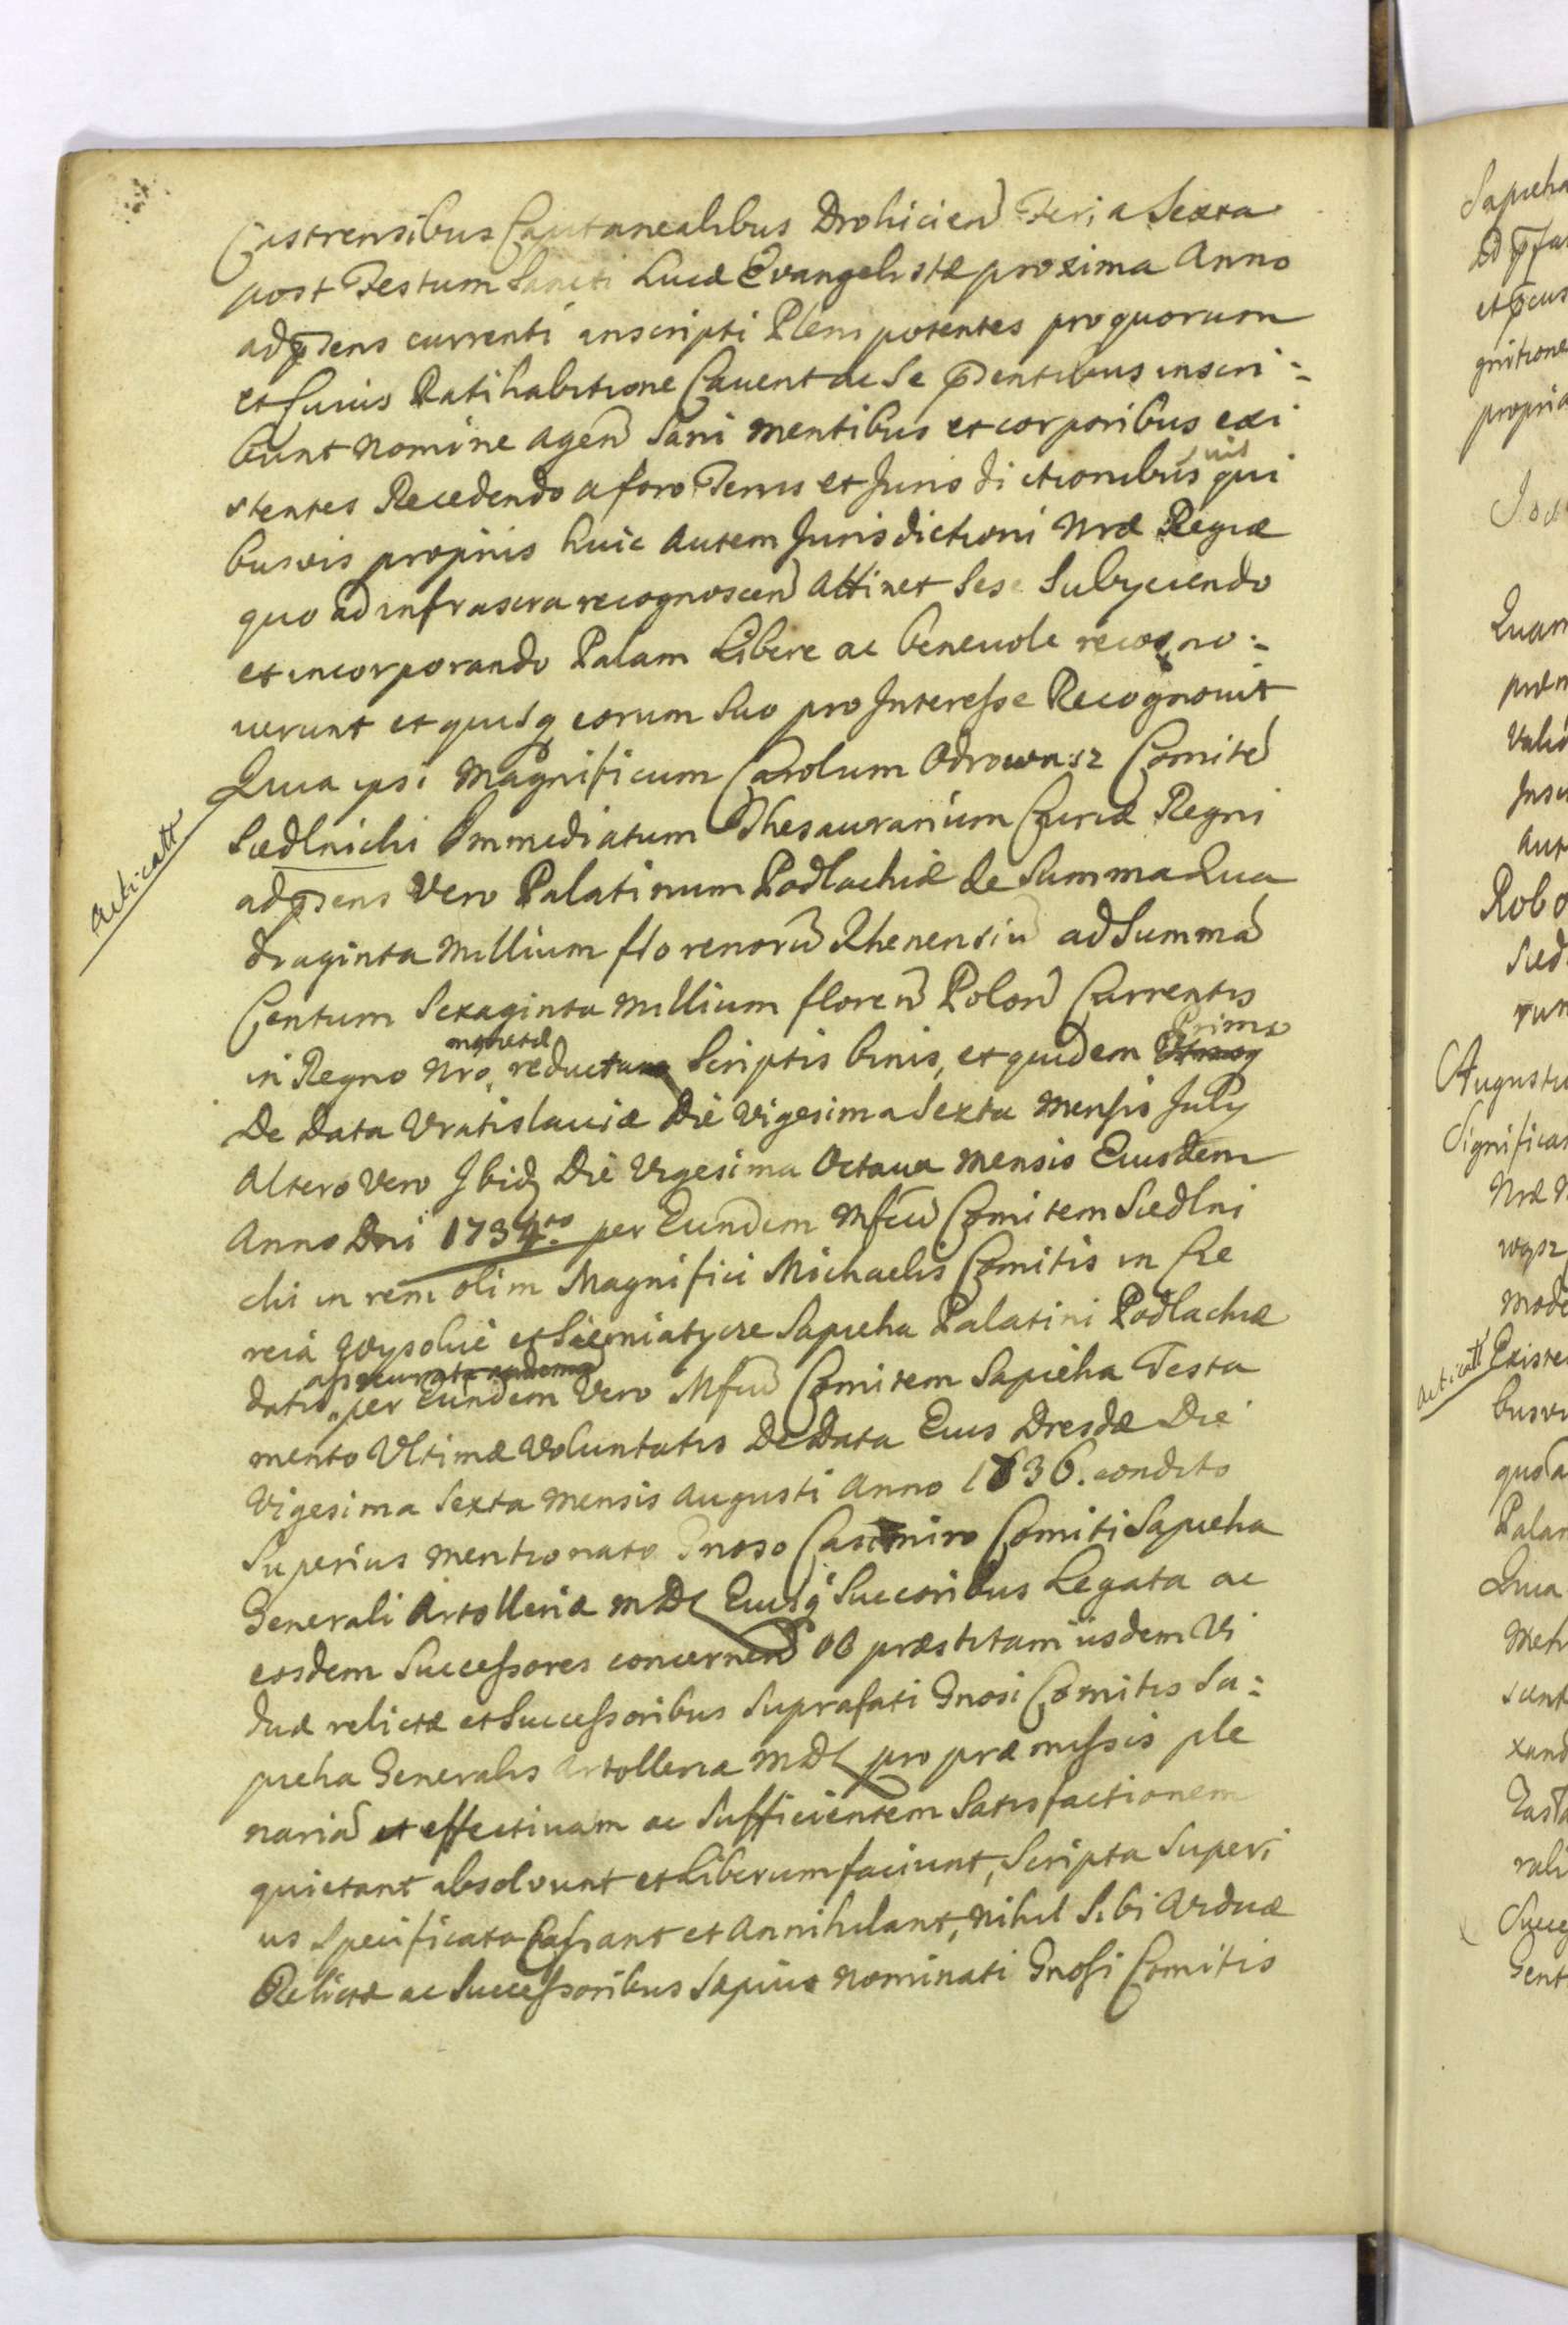 Castrensibus Capitanealibus Drohicien Feria Sexta
post Festum Sancti Lucæ Evangelistæ proxima Anno
ad p̄sens currenti inscripti Plenipotentes pro quorum
et Ratihabitione Cavent ac Se p̄sentibus inscri=
bunt nomine agen Sani mentibus et corporibus exi
stentes Recedendo a foro Terris et Jurisdictionibus suis qui
busvis proprijs huic autem Jurisdictioni Nræ Regiæ
quo ad infrascra recognoscen attinet Sese Subyciendo
et incorporando Palam Libere ac benevole recogno=
verunt et quisq eorum Suo pro Interesse Recognovit
Quia ipsi Magnificum Carolum Odrowąsz Comitē
Siedlnicki Immediatum Thesaurarium Curiæ Regni
ad p̄sens Vero Palatinum Podlachiæ de Summa Qua
draginta Millium florenorū Rhenensiū ad Summā
Centum Sexaginta Millium floren Polon Currentis
in Regno Nro monetæ reducta Scriptis binis, et quidem Primo
De Data Vratislaviæ Die Vigesima Sexta Mensis July
Altero Vero Ibid Die Vigesima Octava Mensis Eiusdem
Anno Dni 1734to per Eundem Mfcū Comitem Siedlni
cki in rem olim Magnifici Michaelis Comitis in Cze
reia Wysokie et Siemiatycze Sapieha Palatini Podlachiæ
datis per Eundem Vero Mfcū Comitem Sapieha Testa
mento Ultimæ Voluntatis De Data Eius Dresdæ Die
Vigesima Sexta Mensis Augusti Anno 1736. condito
Superius mentionato Gnoso Casimiro Comiti Sapieha
Generali Artolleriæ MDL Eiusq Succoribus Legata ac
eosdem Successores concernen Ob præstitam iisdem Vi
duæ relictæ et Successoribus Suprafati Gnosi Comitis Sa=
pieha Generalis Artolleriæ MDL pro præmissis ple
nariā et effectivam ac Sufficientem Satisfactionem
quietant absolvunt et Liberum faciunt, Scripta Superi
us Specificata Cassant et Annihilant, nihil Sibi Viduæ
Relictæ ac Successoribus Sæpius nominati Gnosi Comitis
Acticatt
Sapieha
propria
Quam
Augustu
Significa
Acticatt
Existe
busvi
Palam
Quia